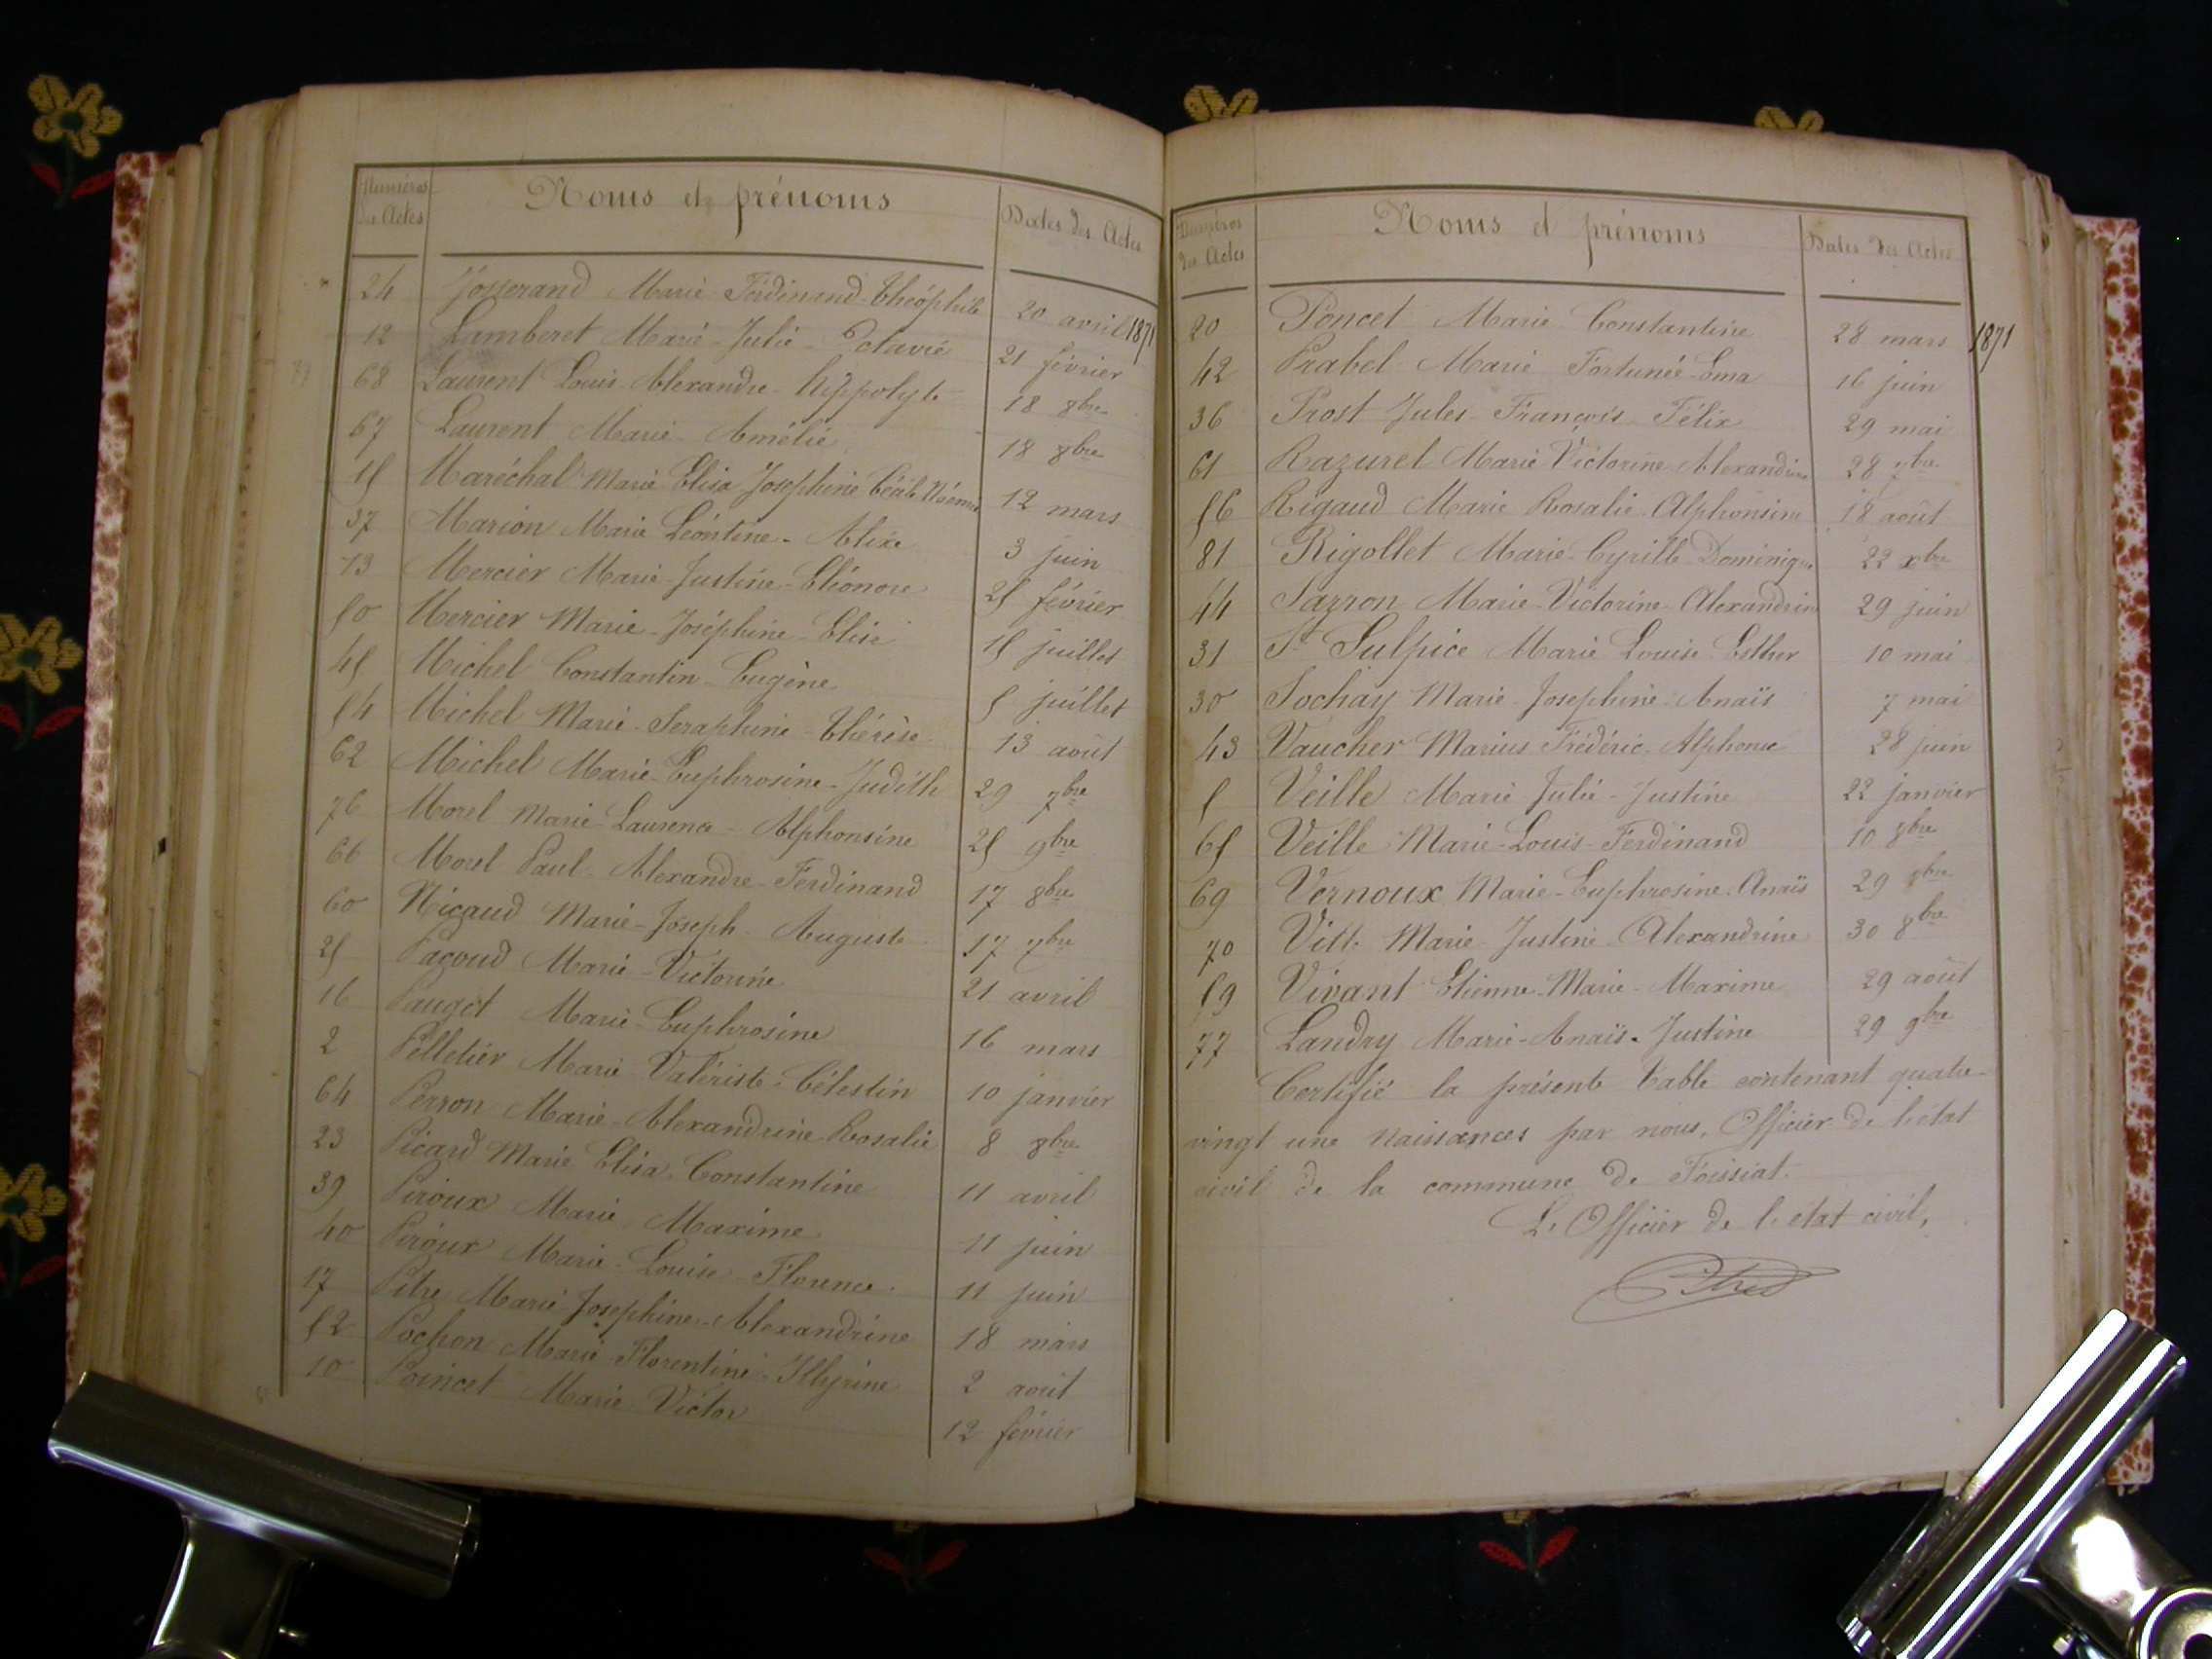 Numéros Noms et prénoms Dates des Actes
des Actes
24 Josserand Marie Ferdinand Théophile 20 avril 1871
12 Lamberet Marie-Julie-Octavie 21 février
68 Laurent Louis-Alexandre-hippolyte 18 8bre
67 Laurent Marie Amélie 18 8bre
15 Maréchal Marie Elisa Josephine 12 mars
37 Marion Marie Léontine-Alixe 3 juin
13 Mercier Marie-Justine-Eléonore 25 février
50 Mercier Marie-Joséphine-Elise 15 juillet
45 Michel Constantin-Eugène 5 juillet
54 Michel Marie-Seraphine-Thérèse 13 août
62 Michel Marie-Euphrosine-Judith 29 7bre
76 Morel Marie-Laurence-Alphonsine 25 9bre
66 Morel Paul-Alexandre-Ferdinand 17 8bre
60 Nicaud Marie-Joseph-Auguste 17 7bre
25 Pacoud Marie-Victorine 21 avril
16 Pauget Marie-Euphrosine 16 mars
2 Pelletier Marie Valériste-Célestin 10 janvier
64 Perron Marie-Alexandrine-Rosalie 8 8bre
23 Picard Marie Elisa-Constantine 11 avril
39 Piroux Marie Maxime 11 juin
40 Piroux Marie-Louise-Florence 11 juin
17 Pitre Marie-Josephine-Alexandrine 18 mars
52 Pochon Marie Florentine-Illyrine 2 août
10 Poincet Marie-Victor 12 février
Numéros Noms et prénoms Dates des Actes
des Actes
20 Poncet Marie Constantine 28 mars 1871
42 Prabel Marie Fortunée 16 juin
36 Prost Jules-François-Félix 29 mai
61 Razurel Marie Victorine Alexandrine 28 7bre
56 Rigaud Marie Rosalie Alphonsine 18 août
81 Rigollet Marie-Cyrille Dominique 22 xbre
44 Sazron Marie-Victorine-Alexandrine 29 juin
31 St Sulpice Marie Louise Esther 10 mai
30 Sochay Marie-Josephine-Anaïs 7 mai
43 Vaucher Marius Frédéric-Alphonse 28 juin
5 Veille Marie Julie-Justine 22 janvier
65 Veille Marie-Louis-Ferdinand 10 8bre
69 Vernoux Marie-Euphrosine-Anaïs 29 8bre
70 Vitte Marie-Justine-Alexandrine 30 8bre
59 Vivant Etienne-Marie-Maxime 29 août
77 Landry Marie-Anaïs-Justine 29 9bre
Certifié la présente table contenant quatre-
vingt une naissances par nous, Officier de l'état
civil de la commune de Foissiat.
L'Officier de l'état civil,